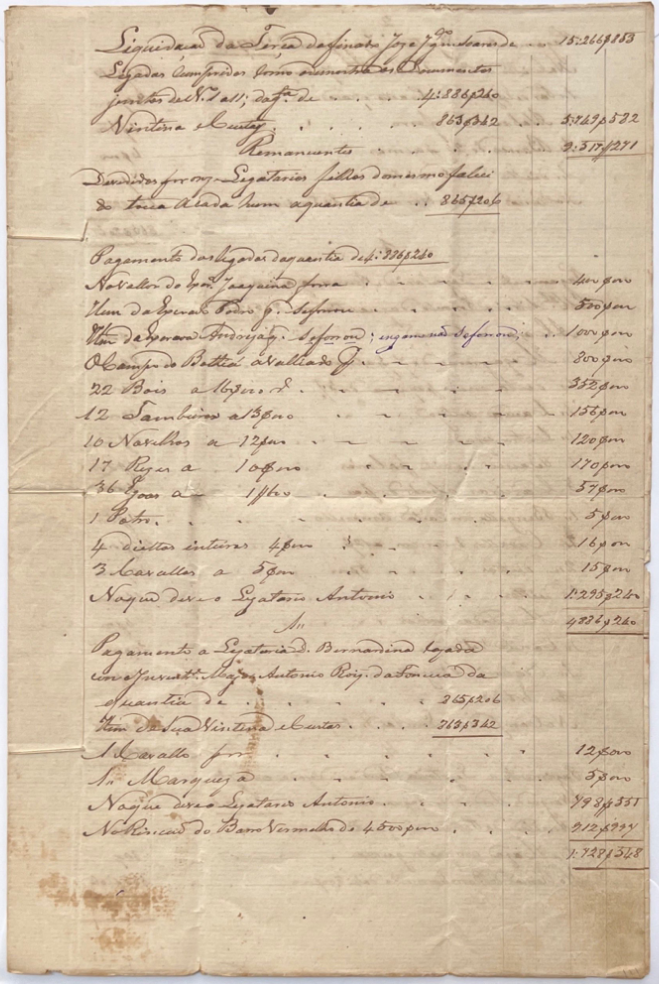 Liquidação da Terça do finado Joze Joqm Soares de 15:266$853
Legados Cumpridos como mostra os Documentos
juntos de N.1 a 11; da qa de 4:886$240
Vintena e Custas 863$342 5:749$582
Remanentes 9:517$271
Devididos por onze Legatarios filhos do mesmo faleci
do toca a cada hum a quantia de 865$206
Pagamento dos legados da quantia de 4:886$240
No vallor do Joaquina forra 400$000
Idem da Escrava 500$000
Idem da Escrava Andreza q. Se forrou; Se forrou, 1000$000
O Campo do Bottiá avalliado 800$000
22 Bois a 16$000 rs 352$000
12 Tambeiros a 13$000 156$000
10 Novilhos a 12$000 120$000
17 Rezes a 10$000 170$000
36 Egoas a 1$600 57$000
1 Potro. 5$000
4 dittos inteiros 4$000 16$000
3 Cavallos a 5$000 15$000
No que deve o Legatario Antonio 1:295$240
4886$240
Pagamento a Legataria D. Bernardina Cazada
com o Major Antonio Roiz da Fonceca da
quantia de 865$206
Idem da Sua Vintena e Custas 863$342
1 Cavallo por 12$000
1 Marqueza 5$000
No que deve o Legatario Antonio. 798$551
No Rincão do Barro Vermelho de 4500$000 912$997
1:728$548